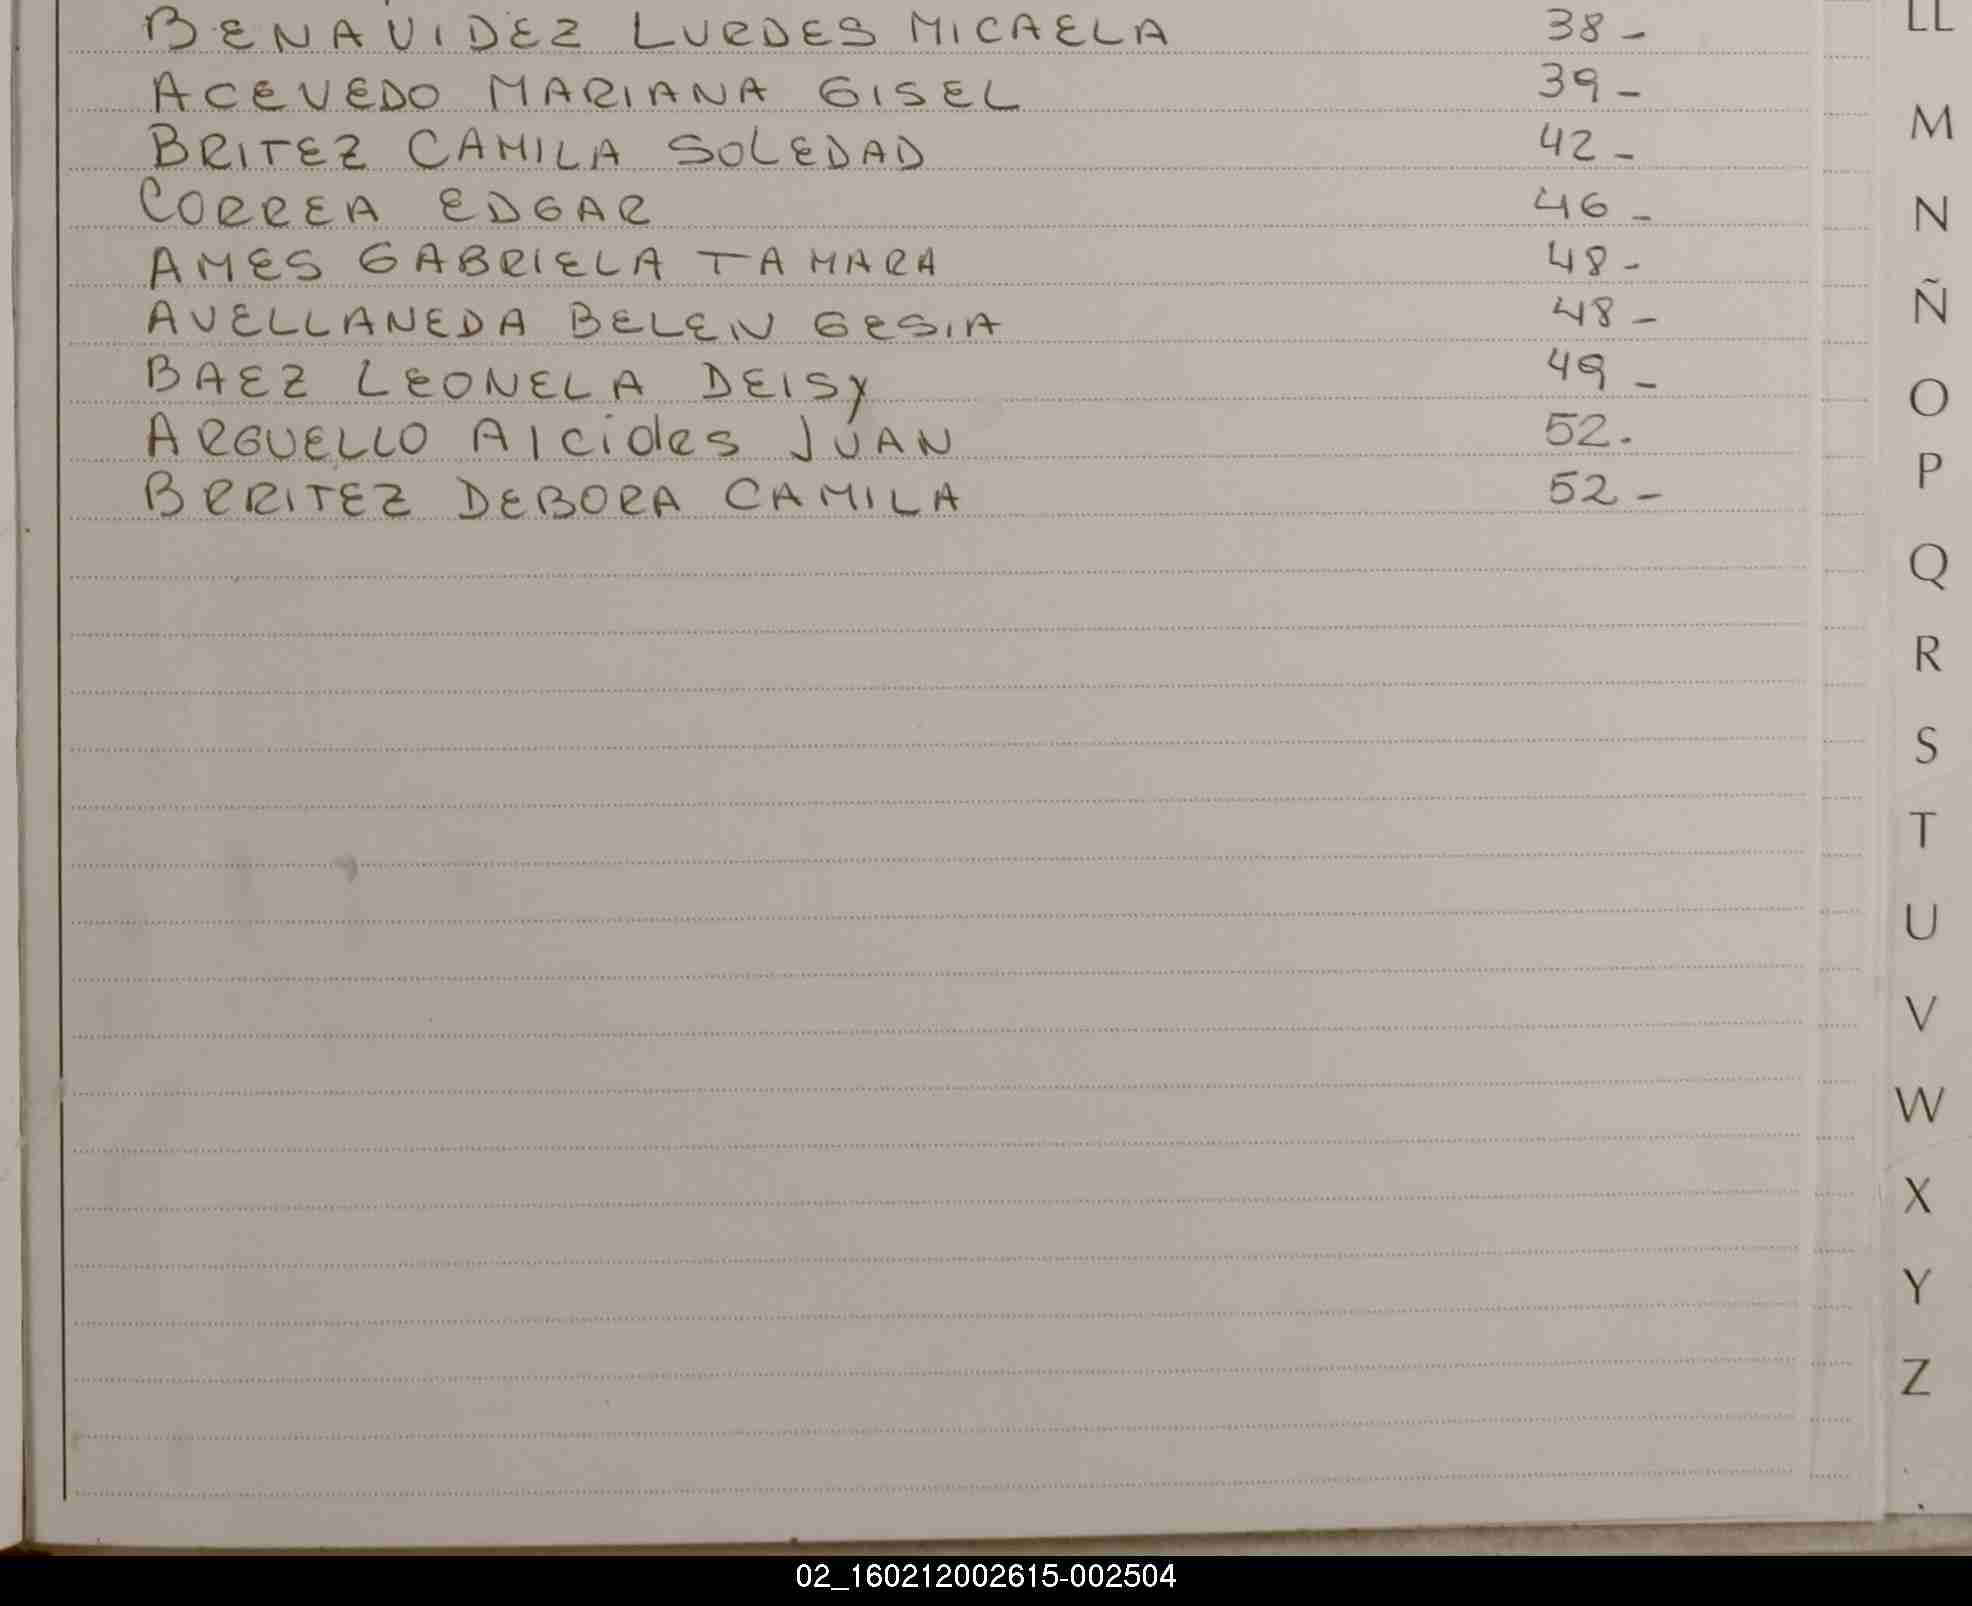 BENAVIDEZ LURDES MICAELA 38-
ACEVEDO MARIANA GISEL 39-
BRITEZ CAMILA SOLEDAD 42-
CORREA EDGAR 46-
AMES GABRIELA TAMARA 48-
AVELLANEDA BELEN GESIA 48-
BAEZ LEONELA DEISY 49-
ARGUELLO Alcides JUAN 52.
BRRITEZ DEBORA CAMILA 52-
LL
M
N
Ñ
O
P
Q
R
S
T
U
V
W
X
Y
Z
02_160212002615-002504